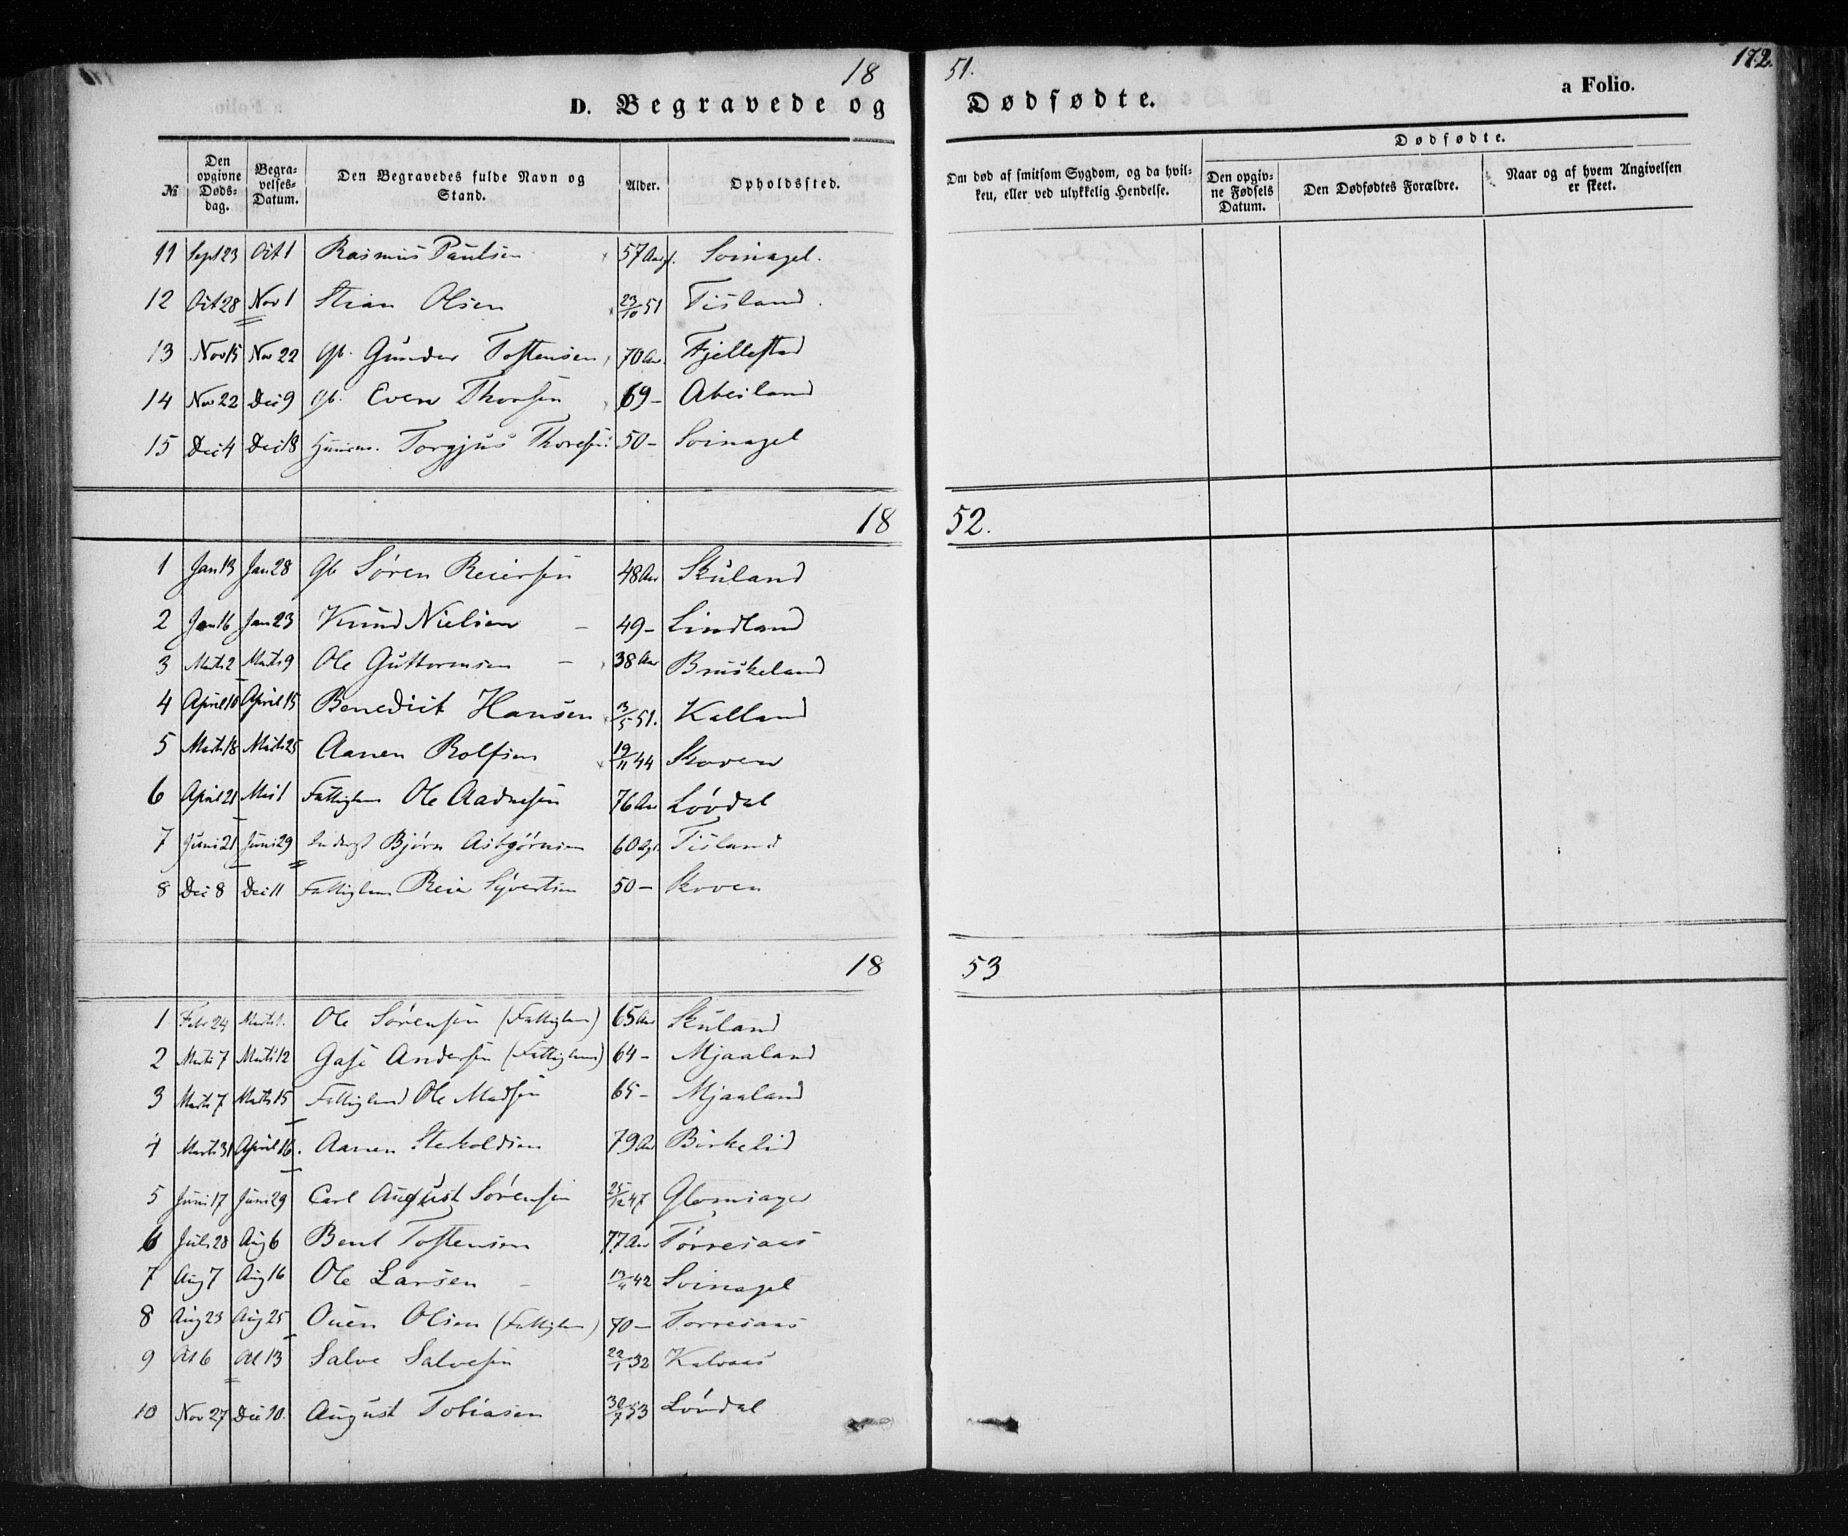 18 51. 172.
D. Begravede og Dødfødte. a Folio.
№ Den opgivne Døds-dag. Begra-velses-Datum. Den Begravedes fulde Navn og Stand. Alder. Opholdssted. Om død af smitsom Sygdom, og da hvil-ken, eller ved ulykkelig Hendelse. Dødfødte. Den opgiv-ne Fødsels Datum. Den Dødfødtes Forældre. Naar og af hvem Angivelsen er skeet.
11 Sept 23 Oct 1 Rasmus Paulsen 57 Aar Svinagel.
12 Oct 28 Nov 1 Stian Olsen 23/10 51 Tisland.
13 Nov 15 Nov 22 Gb. Gunder Tostensen 70 Aar Fjellestad
14 Nov 22 Dec 9 Gb. Even Thorsen 69 - Abeiland
15 Dec 4 Dec 18 Huusm. Torgjus Thoresen 50 - Svinagel
18 52.
1 Jan 13 Jan 28 Gb Søren Reiersen 48 Aar Skuland
2 Jan 16 Jan 23 Knud Nielsen - 49 - Lindland
3 Marts 2 Marts 9 Ole Guttormsen - 38 Aar Bruskeland
4 April 10 April 15 Benedict Hansen 13/5 51. Kalland
5 Marts 18 Marts 25 Aanen Rolfsen 19/11 44 Skoven
6 April 21 Mai 1 Fattiglem Ole Aadnesen 76 Aar Løvdal
7 Juni 21 Juni 29 Inderst Bjørn Asbjørnsen 60 Tisland
8 Dec 8 Dec 11 Fattiglem Reier Syvertsen 50 - Skoven
18 53
1 Febr 24 Marts 1. Ole Sørensen (Fattiglem) 65 Aar Skuland
2 Marts 7 Marts 12 Andersen (Fattiglem) 64 - Mjaaland
3 Marts 7 Marts 15 Fattiglem Ole Madsen 65 - Mjaaland
4 Marts 31 April 16. Aanen Sterkoldsen 79 Aar Birkelid
5 Juni 17 Juni 29 Carl August Sørensen 25/12 47 Glomsager
6 Juli 28 Aug 6 Bent Tostensen 77 Aar Tørresaas
7 Aug 7 Aug 16 Ole Larsen - 42 Svinagel
8 Aug 23 Aug 25 Ouen Olsen (Fattiglem) 70 - Torresaas
9 Oct 6 Oct 13 Salve Salvesen 22/1 32 Kalvaas
10 Nov 27 Dec 10. August Tobiasen 30/9 53 Løvdal